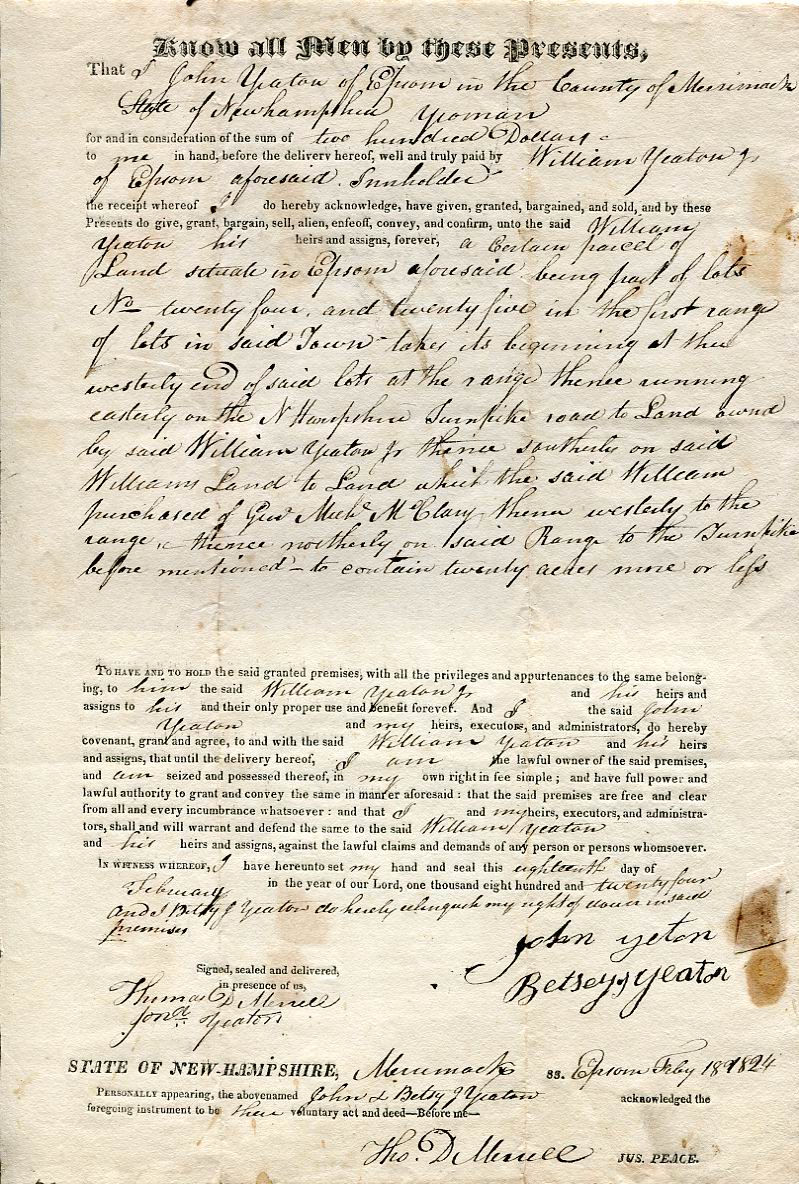 Know all Men by these Presents,
That I John Yeaton of Epsom in the County of Merrimack
State of Newhampshire Yoman
for and in consideration of the sum of two hundred Dollars
to me in hand, before the delivery hereof, well and truly paid by William Yeaton Jr
of Epsom aforesaid. Innholder
the receipt whereof I do hereby acknowledge, have given, granted, bargained, and sold, and by these
Presents do give, grant, bargain, sell, alien, enfeoff, convey, and confirm, unto the said William
Yeaton his heirs and assigns, forever, a Certain parcel of
Land situate in Epsom aforesaid being part of lots
No twenty four, and twenty five in the first range
of lots in said Town takes its beginning at the
westerly end of said lots at the range thence running
easterly on the N Hampshire Turnpike road to Land ownd
by said William Yeaton Jr thence southerly on said
Williams Land to Land which the said William
purchased of Michl McClary thence westerly to the
range, thence northerly on said Range to the Turnpike
before mentioned - to contain twenty acres more or less
To have and to hold the said granted premises, with all the privileges and appurtenances to the same belong-
ing, to him the said William Yeaton Jr and his heirs and
assigns to his and their only proper use and benefit forever. And I the said John
Yeaton and my heirs, executors, and administrators, do hereby
covenant, grant and agree, to and with the said William Yeaton and his heirs
and assigns, that until the delivery hereof, I am the lawful owner of the said premises,
and am seized and possessed thereof, in my own right in fee simple; and have full power and
lawful authority to grant and convey the same in manner aforesaid: that the said premises are free and clear
from all and every incumbrance whatsoever: and that I and my heirs, executors, and administra-
tors, shall and will warrant and defend the same to the said William Yeaton
and his heirs and assigns, against the lawful claims and demands of any person or persons whomsoever.
In witness whereof, I have hereunto set my hand and seal this eighteenth day of
February in the year of our Lord, one thousand eight hundred and twenty four
and I Betsy J Yeaton do hereby relinquish my right of dower in said
premises
john yeton
Betsey J yeaton
Signed, sealed and delivered,
in presence of us,
Thomas D Merrill
Jona Yeaton
STATE OF NEW-HAMPSHIRE, Merrimack ss. Epsom Feby 18 1824
Personally appearing, the abovenamed John & Betsy J Yeaton acknowledged the
foregoing instrument to be their voluntary act and deed—Before me—
Tho. D Merrill JUS. PEACE.